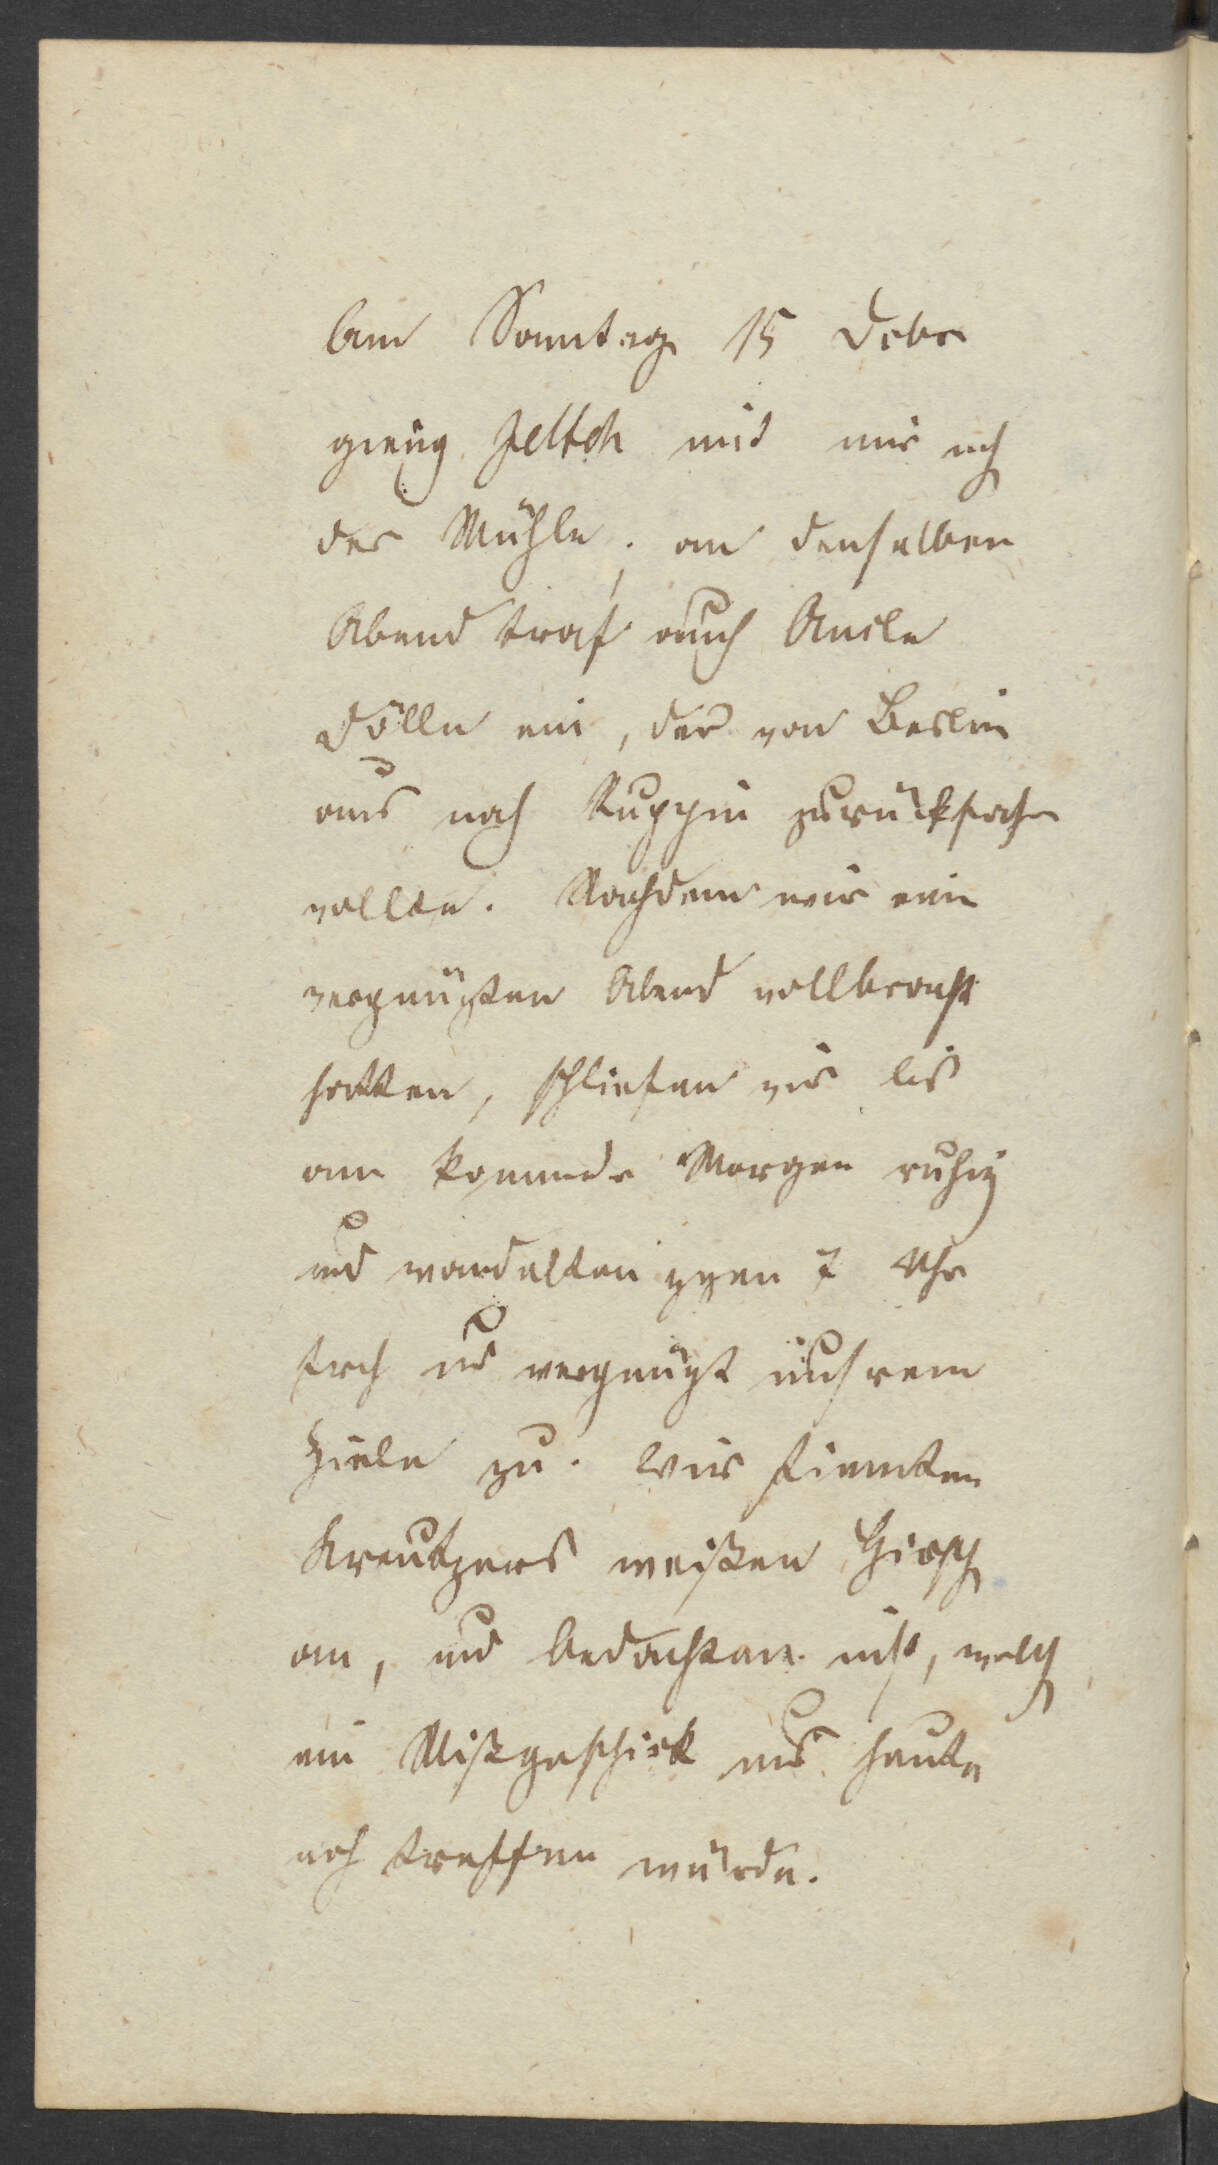 Am Sonntag 15 Debr
gieng Jeltsch mit mir nch
der Mühle; an denselben
Abend traf auch Amile
Dölln ein, der von Berlin
aus nach Ruppin zurückfahren
wollte. Nachdem wir ein
vergnügten Abend vollbracht
hatten, schliefen wir bis
am kommende Morgen ruhig
und wandelten gegen 7 Uhr
frh und vergnügt unsrem
Ziele zu. Wir stimmten
Kreutzers weißen Hirsch
an, und bedachten nicht, welch
ein Mißgeschick uns heute
noch treffen würde.